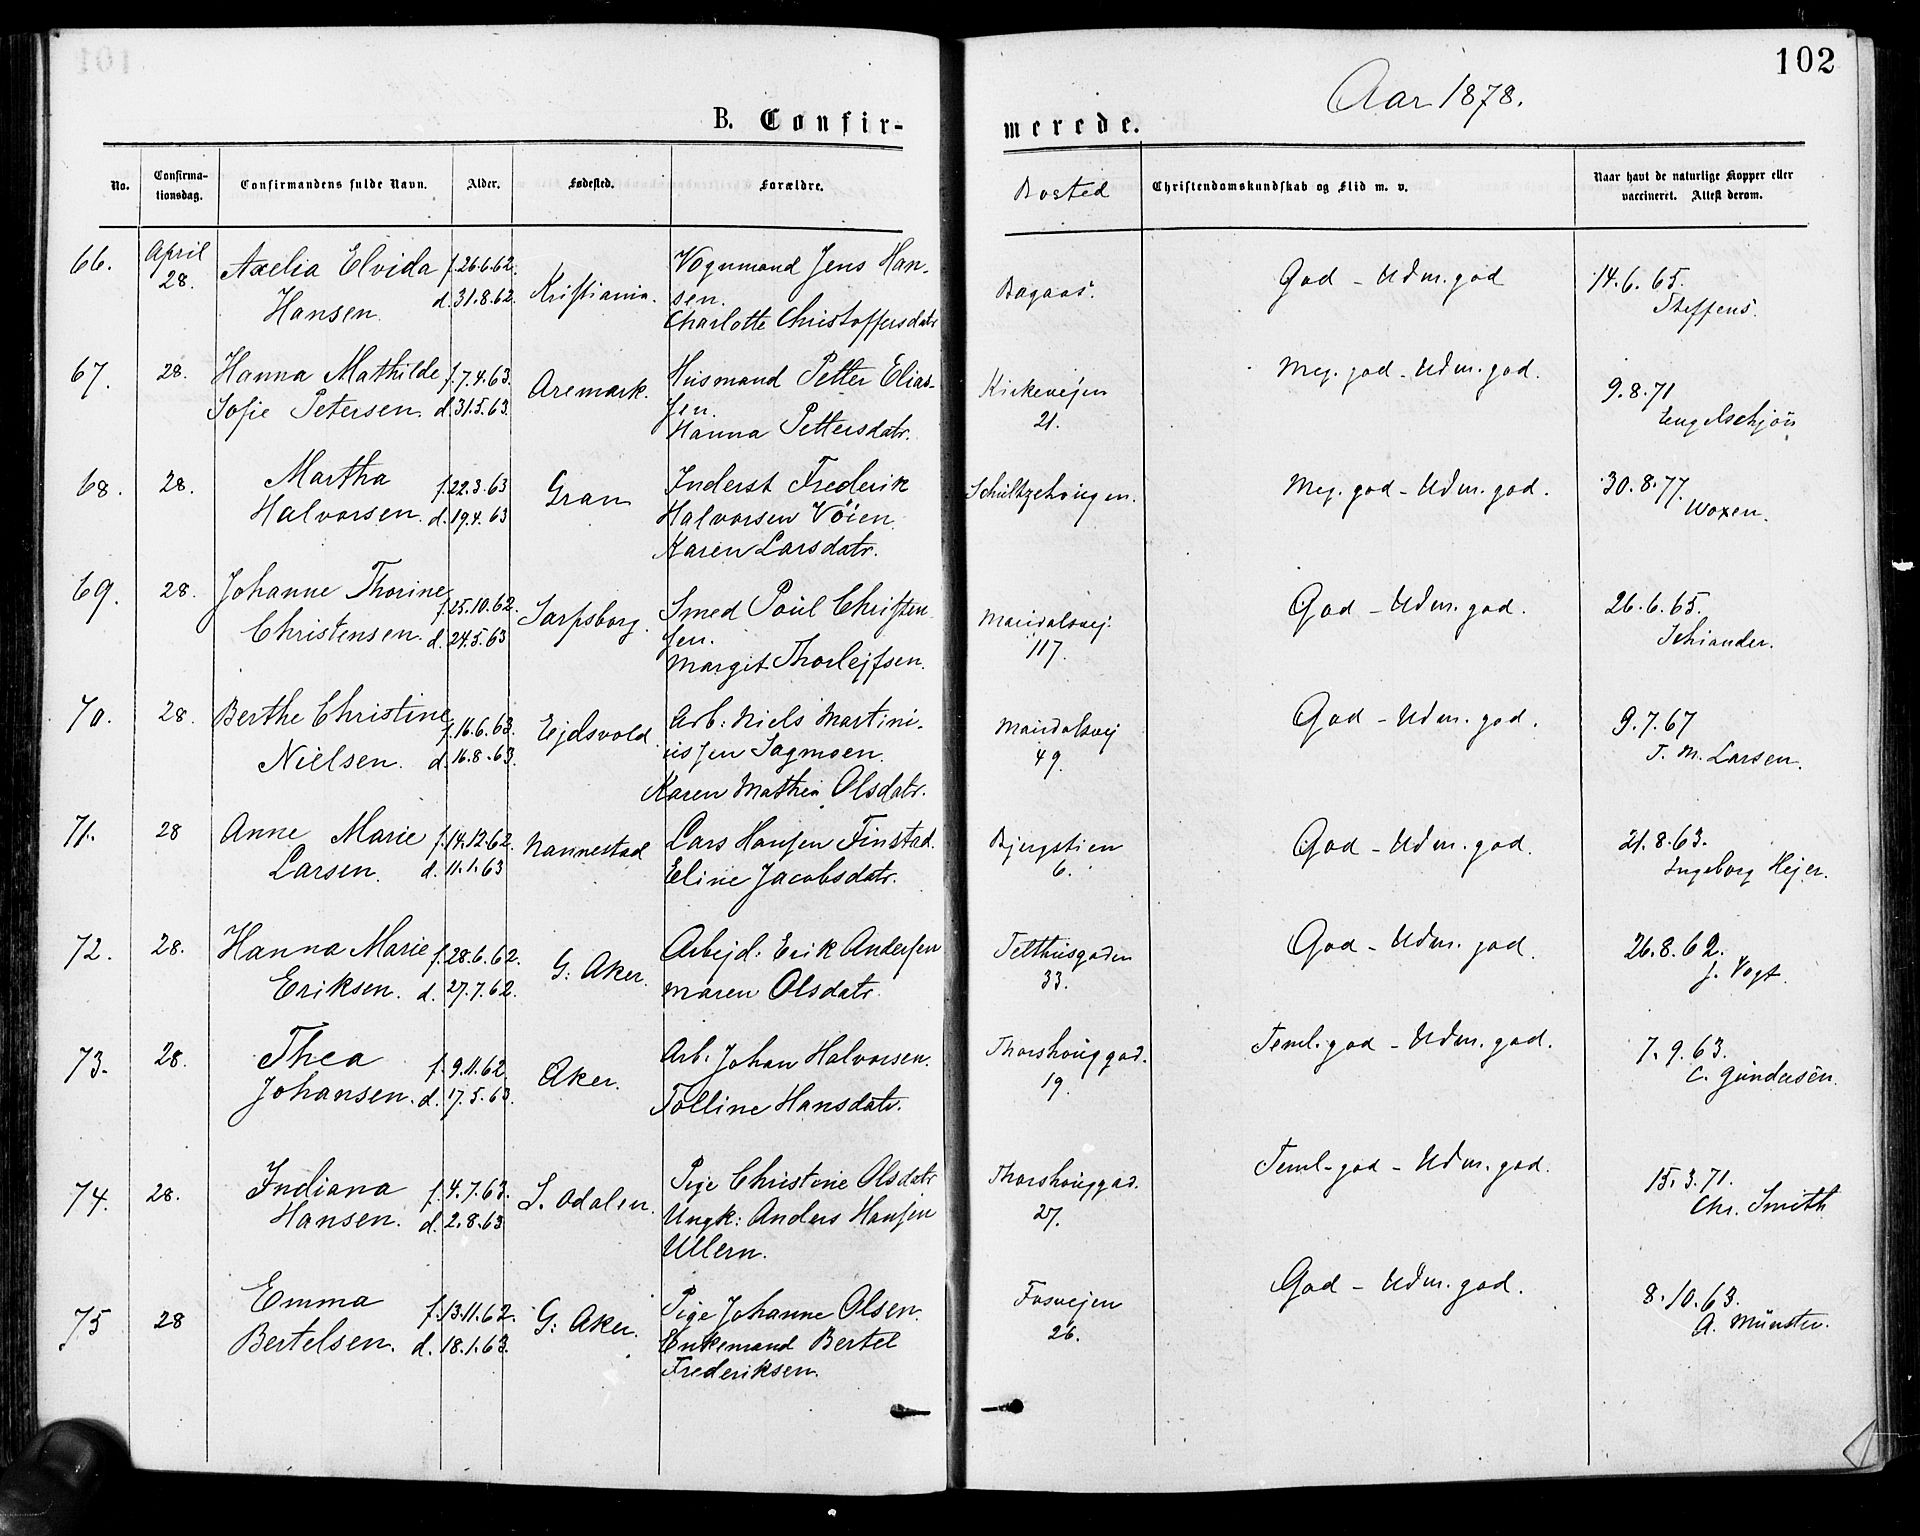 102
Aar 1878.
B. Confir-
merede.
No.
Confirma-
tionsdag.
Confirmandens fulde Navn.
Alder.
Fødested.
Forældre.
Bosted
Christendomskundskab og Flid m. v.
Naar havt de naturlige Kopper eller
vaccineret. Attest derom.
66.
April
28.
Axelia Elvida
Hansen
f. 26.6.62.
d. 31.8.62.
Kristiania.
Vognmand Jens Han-
sen.
Charlotte Christoffersdatr
Bagaas.
God - Udm. god
14.6.65.
Steffens.
67.
28.
Hanna Mathilde
Sofie Petersen.
f. 7.4.63.
d. 31.5.63.
Aremark.
Husmand Petter Elias-
sen.
Hanna Pettersdatr.
Kirkevejen
21.
Meg. god - Udm. god.
9.8.71
Engelschjön
68.
28.
Martha
Halvorsen.
f. 22.3.63
d. 19.4.63
Gran
Inderst Frederik
Halvorsen Vöien.
Karen Larsdatr.
Schultzehougen.
Meg. god - Udm. god.
30.8.77.
Woxen.
69.
28.
Johanne Thorine
Christensen.
f. 25.10.62.
d. 24.5.63
Sarpsborg.
Smed Poul Christen-
sen.
Margit Thorlejfsen.
Maridalsvej.
117.
God - Udm. god.
26.6.65.
Schiander.
70.
28.
Berthe Christine
Nielsen.
f. 16.6.63.
d. 16.8.63.
Ejdsvold
Arb: Niels Martini-
ussen Sagmoen.
Karen Mathea Olsdatr.
Maridalsvej
49.
God - Udm. god.
9.7.67
T. M. Larsen.
71.
28
Anne Marie
Larsen.
f. 14.12.62.
d. 11.1.63
Nannestad
Lars Hansen Finstad.
Eline Jacobsdatr.
Bjergstien
6.
God - Udm. god.
21.8.63.
Ingeborg Hejer.
72.
28.
Hanna Marie
Eriksen.
f. 28.6.62.
d. 27.7.62.
G: Aker.
Arbejd: Erik Andersen
Maren Olsdatr.
Telthusgaden
33.
God - Udm. god.
26.8.62.
J. Vogt.
73.
28.
Thea
Johansen.
f. 9.11.62.
d. 17.5.63.
Aker.
Arb: Johan Halvorsen.
Tolline Hansdatr.
Thorshouggad.
19.
Teml. god - Udm. god.
7.9.63.
C. Gundersen.
74.
28.
Indiana
Hansen.
f. 4.7.63.
d. 2.8.63
S. Odalen.
Pige Christine Olsdatr
Ungk: Anders Hansen
Ullern.
Thorshouggad.
27.
Teml. god - Udm. god.
15.3.71.
Chr. Smith
75
28
Emma
Bertelsen.
f. 13.11.62.
d. 18.1.63.
G: Aker.
Pige Johanne Olsen.
Enkemand Bertel
Frederiksen.
Fosvejen
26.
God - Udm. god.
8.10.63.
A. Münster.